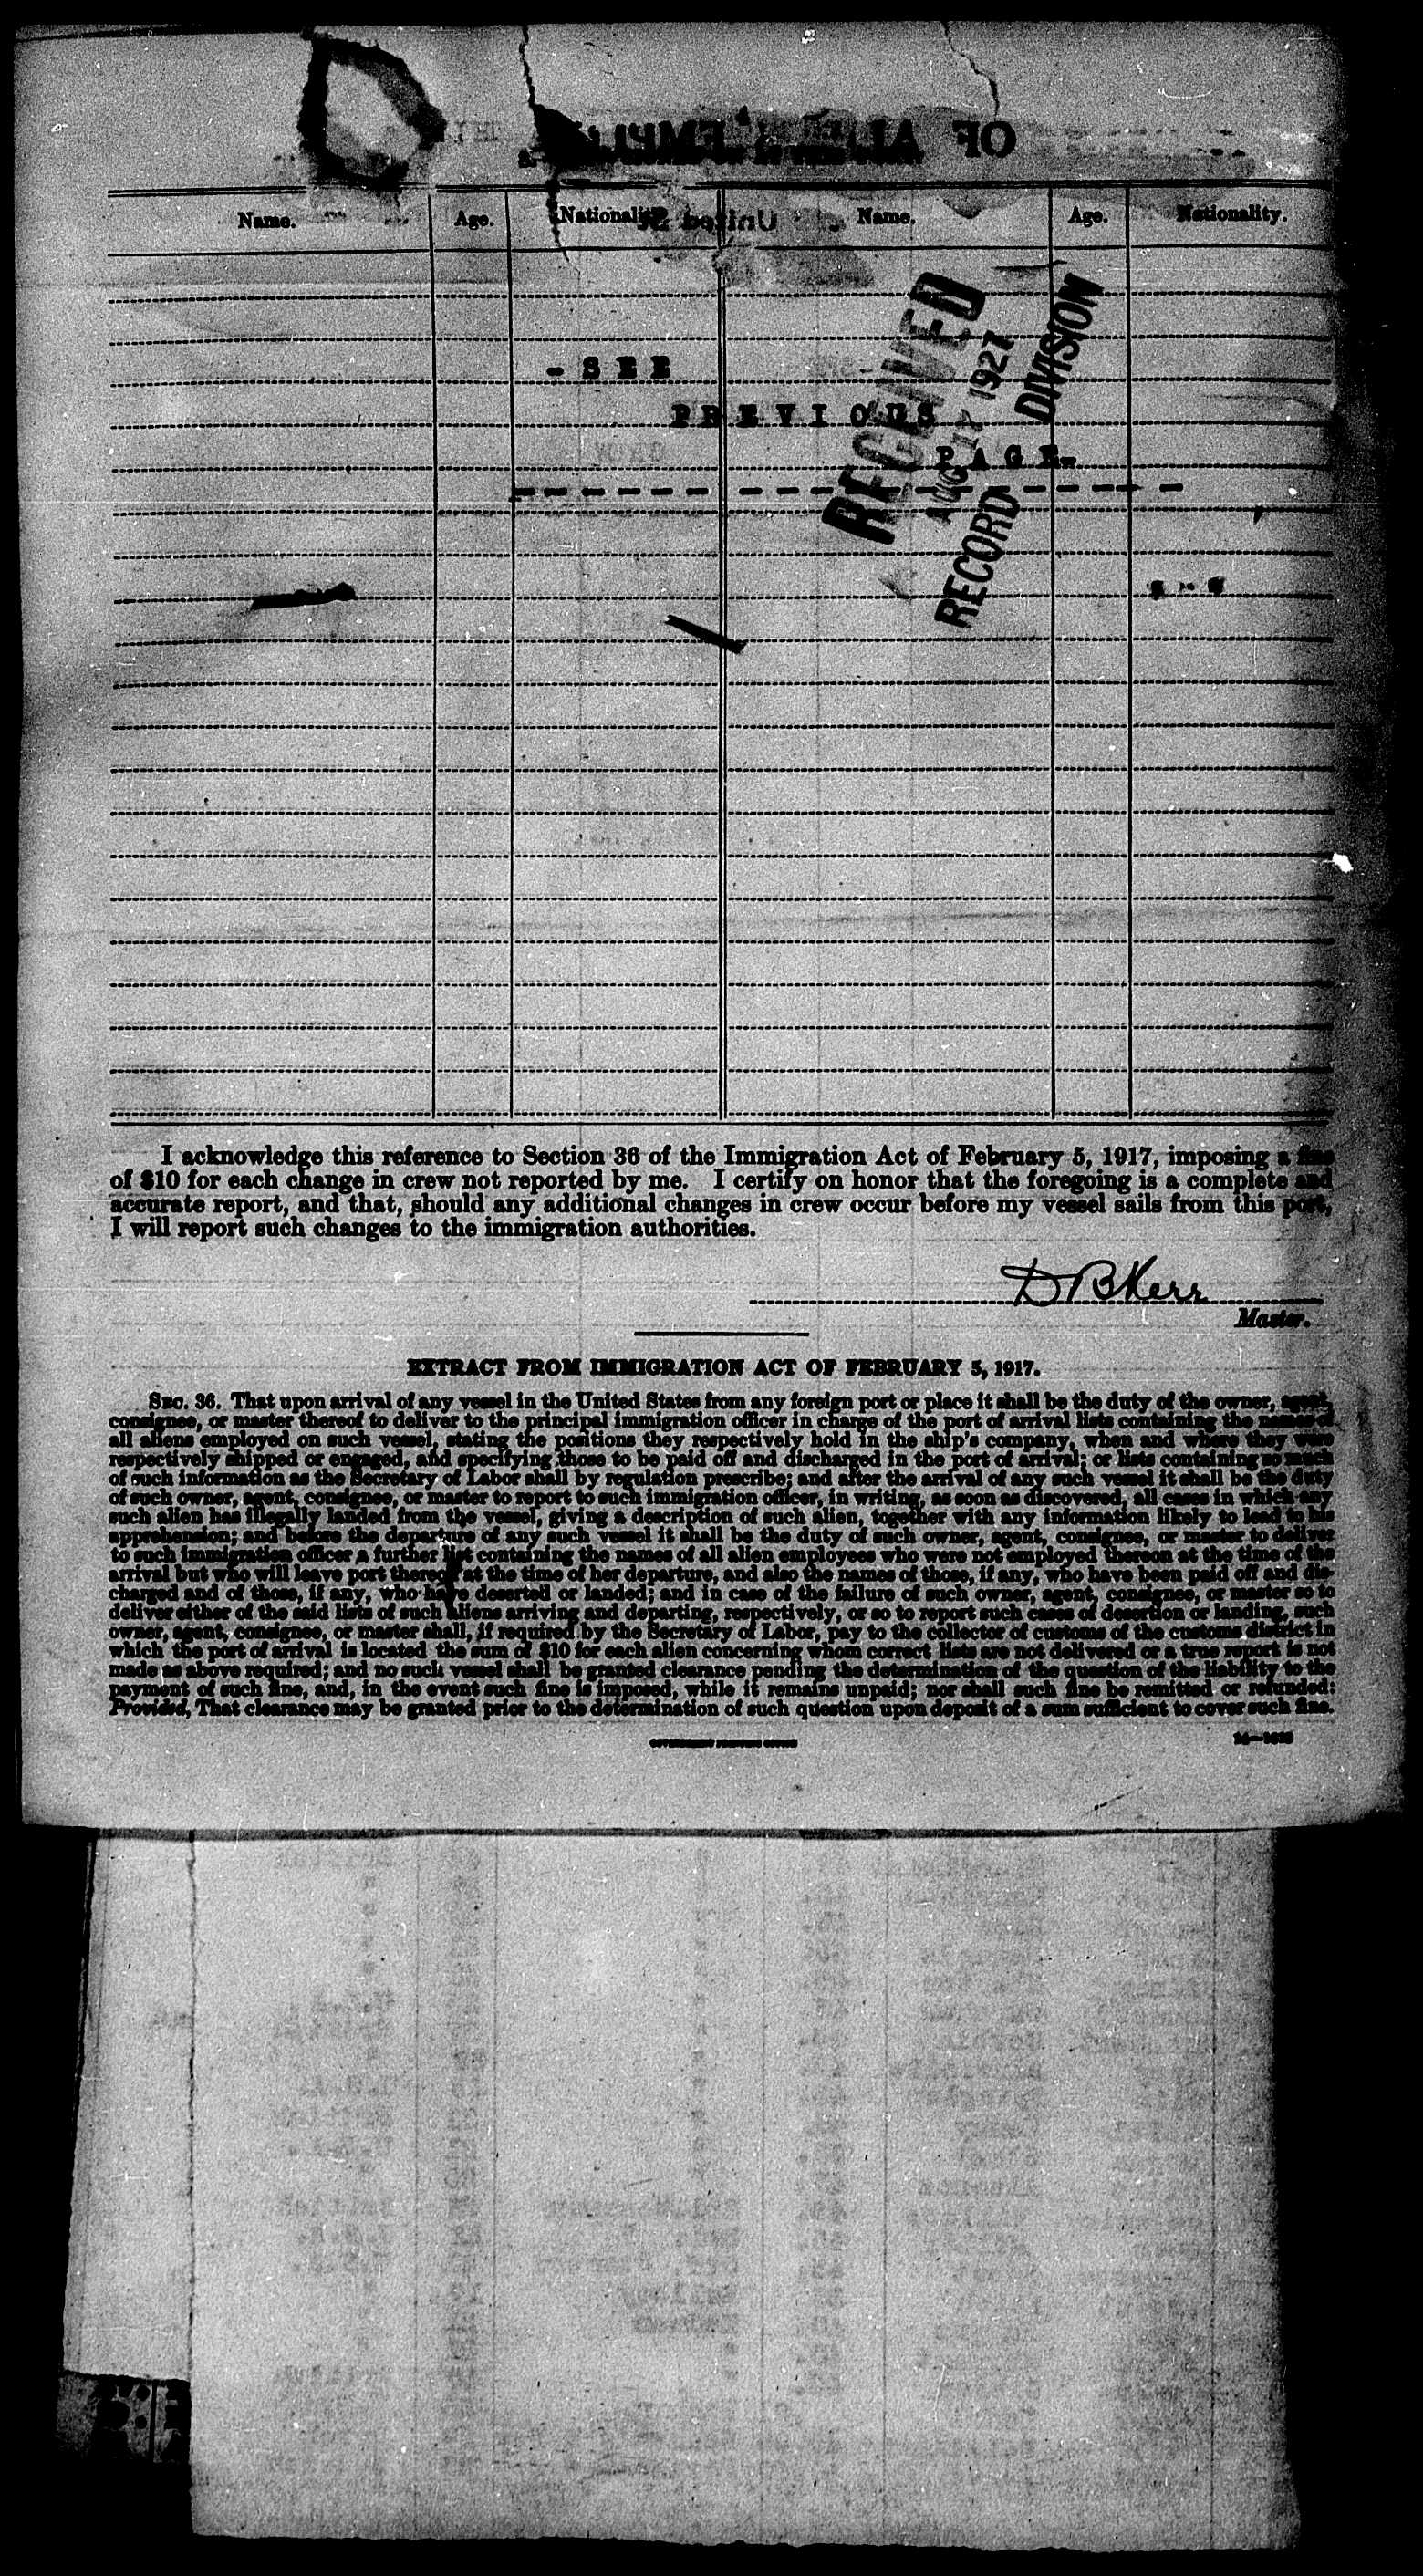 Name. Age. Nationality. Name. Age. Nationality.
- S E E
P R E V I O U S
P A G E -
RECEIVED
AUG 17 1927
RECORD DIVISION
I acknowledge this reference to Section 36 of the Immigration Act of February 5, 1917, imposing a fine
of $10 for each change in crew not reported by me. I certify on honor that the foregoing is a complete and
accurate report, and that, should any additional changes in crew occur before my vessel sails from this port,
I will report such changes to the immigration authorities.
D B Kerr
Master.
EXTRACT FROM IMMIGRATION ACT OF FEBRUARY 5, 1917.
SEC. 36. That upon arrival of any vessel in the United States from any foreign port or place it shall be the duty of the owner, agent,
consignee, or master thereof to deliver to the principal immigration officer in charge of the port of arrival lists containing the names of
all aliens employed on such vessel, stating the positions they respectively hold in the ship's company, when and where they were
respectively shipped or engaged, and specifying those to be paid off and discharged in the port of arrival; or lists containing so much
of such information as the Secretary of Labor shall by regulation prescribe; and after the arrival of any such vessel it shall be the duty
of such owner, agent, consignee, or master to report to such immigration officer, in writing, as soon as discovered, all cases in which any
such alien has illegally landed from the vessel, giving a description of such alien, together with any information likely to lead to his
apprehension; and before the departure of any such vessel it shall be the duty of such owner, agent, consignee, or master to deliver
to such immigration officer a further list containing the names of all alien employees who were not employed thereon at the time of the
arrival but who will leave port thereon at the time of her departure, and also the names of those, if any, who have been paid off and dis-
charged and of those, if any, who have deserted or landed; and in case of the failure of such owner, agent, consignee, or master so to
deliver either of the said lists of such aliens arriving and departing, respectively, or so to report such cases of desertion or landing, such
owner, agent, consignee, or master shall, if required by the Secretary of Labor, pay to the collector of customs of the customs district in
which the port of arrival is located the sum of $10 for each alien concerning whom correct lists are not delivered or a true report is not
made as above required; and no such vessel shall be granted clearance pending the determination of the question of the liability to the
payment of such fine, and, in the event such fine is imposed, while it remains unpaid; nor shall such fine be remitted or refunded:
Provided, That clearance may be granted prior to the determination of such question upon deposit of a sum sufficient to cover such fine.
GOVERNMENT PRINTING OFFICE